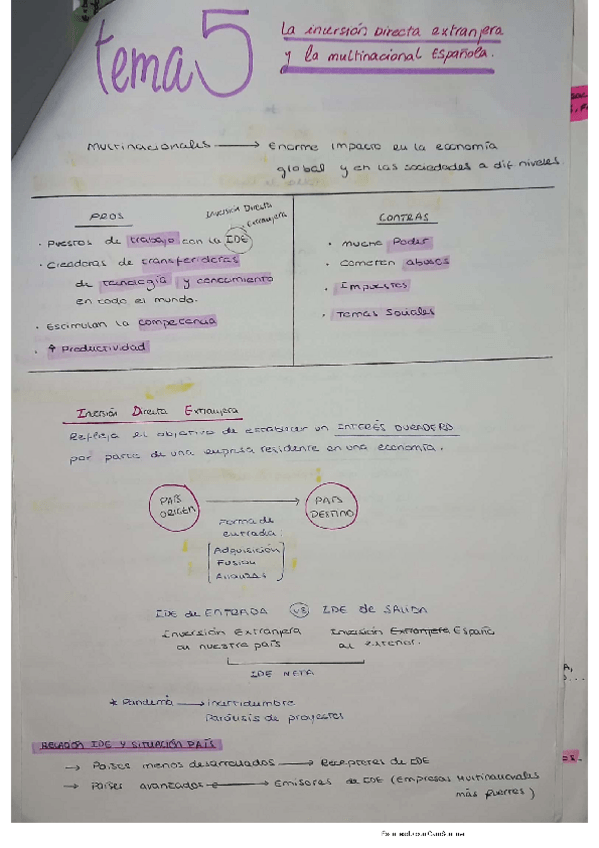 tema 5
La inversión Directa extranjera
y la multinacional Española.
Multinacionales → Enorme impacto en la economía
global y en las sociedades a dif. niveles.
PROS
Inversión Directa
Extranjera
· Puestos de trabajo con la IDE
· Creadoras de transferidoras
de tecnología y conocimiento
en todo el mundo.
· Estimulan la competencia
· ↑ Productividad
CONTRAS
· Mucho Poder
· Cometen abusos
· Impuestos
· Temas Sociales
Inversión Directa Extranjera
Refleja el objetivo de establecer un INTERÉS DURADERO
por parte de una empresa residente en una economía.
PAÍS
ORIGEN
PAÍS
DESTINO
Forma de
entrada:
Adquisición
Fusión
Alianzas
IDE de ENTRADA vs IDE de SALIDA
Inversión Extranjera
en nuestro país
Inversión Extranjera España
al exterior.
IDE NETA
* Pandemia → incertidumbre
Parálisis de proyectos
RELACIÓN IDE Y SITUACIÓN PAÍS
→ Países menos desarrollados → Receptores de IDE
→ Países avanzados → Emisores de IDE (Empresas Multinacionales
más fuertes)